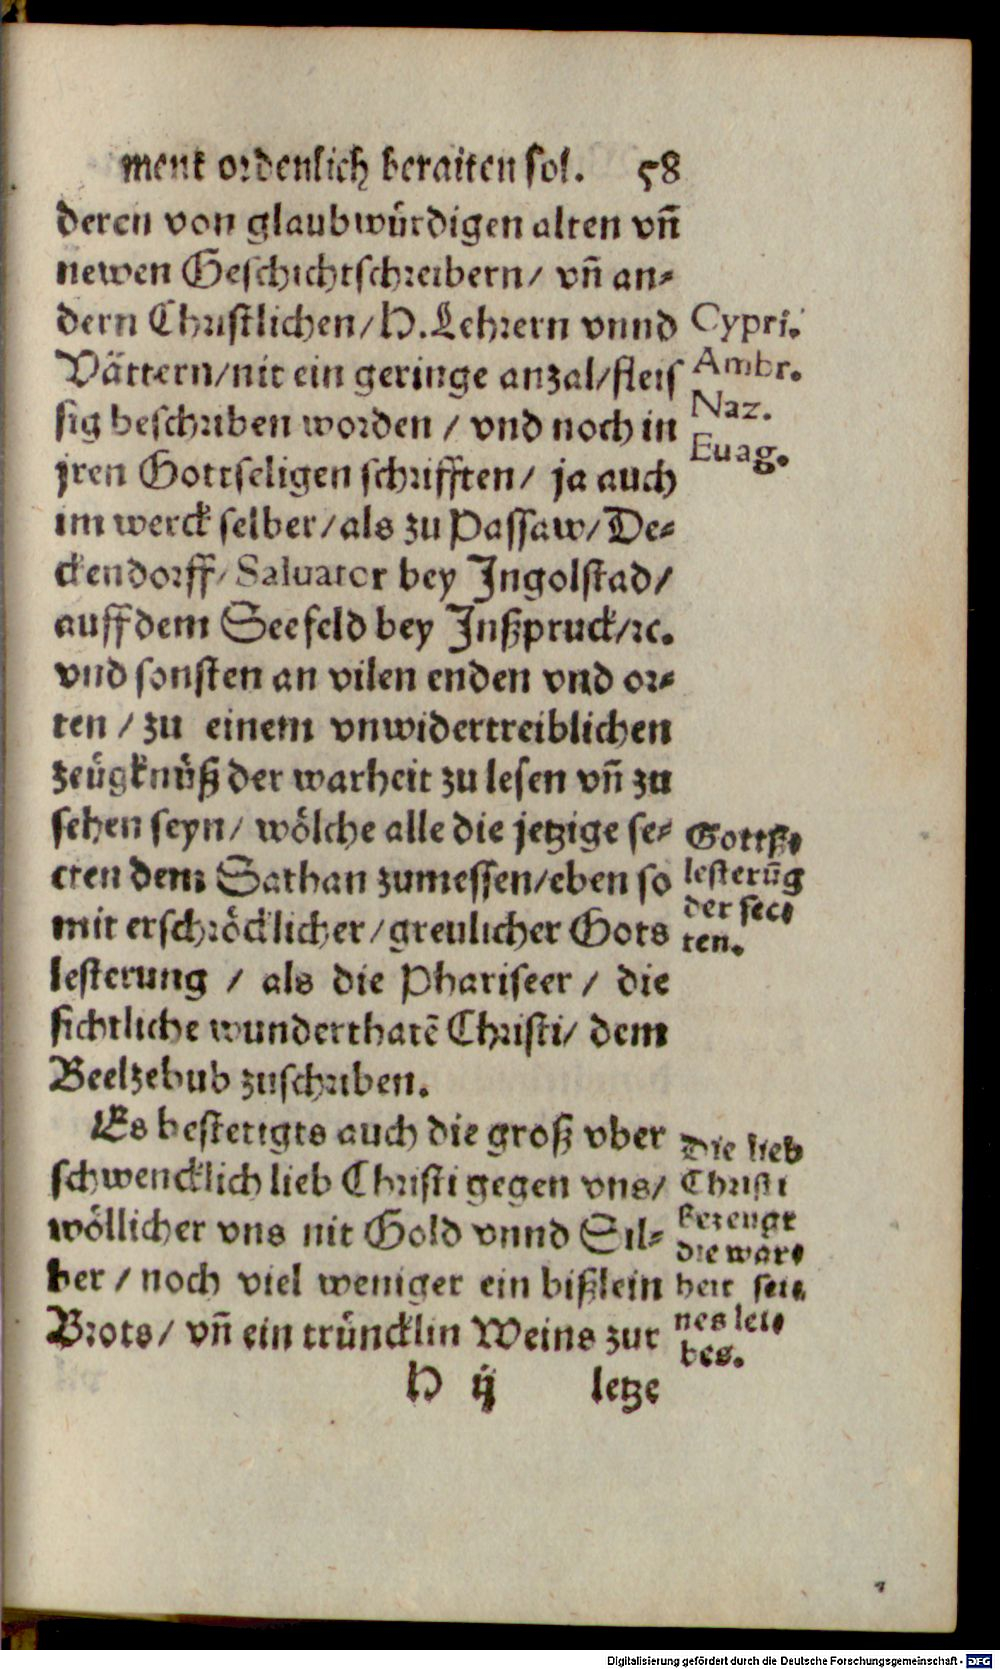 ment ordenlich beraiten sol. 58
deren von glaubwürdigen alten vñ
newen Geschichtschreibern/ vñ an-
dern Christlichen/H.Lehrern vnnd
Vättern/nit ein geringe anzal/fleis
sig beschriben worden / vnd noch in
jren Gottseligen schrifften/ ja auch
im werck selber/als zu Passaw/De-
ckendorff/Saluator bey Jngolstad/
auff dem Seefeld bey Jnßpruck/ꝛc.
vnd sonsten an vilen enden vnd or-
ten / zu einem vnwidertreiblichen
zeügknüß der warheit zu lesen vñ zu
sehen seyn/ wölche alle die jetzige se-
cten dem Sathan zumessen/eben so
mit erschröcklicher/greulicher Gots
lesterung / als die Phariseer / die
sichtliche wunderthatẽ Christi/ dem
Beelzebub zuschriben.
Es bestetigts auch die groß vber
schwencklich lieb Christi gegen vns/
wöllicher vns nit Gold vnnd Sil-
ber / noch viel weniger ein bißlein
Brots/ vñ ein trüncklin Weins zur
H ij letze
Cypri.
Ambr.
Naz.
Euag.
Gottß-
lesterũg
der sec-
ten.
Die lieb
Christi
bezeugt
die war-
heit sei-
nes lei-
bes.
Digitalisierung gefördert durch die Deutsche Forschungsgemeinschaft - DFG